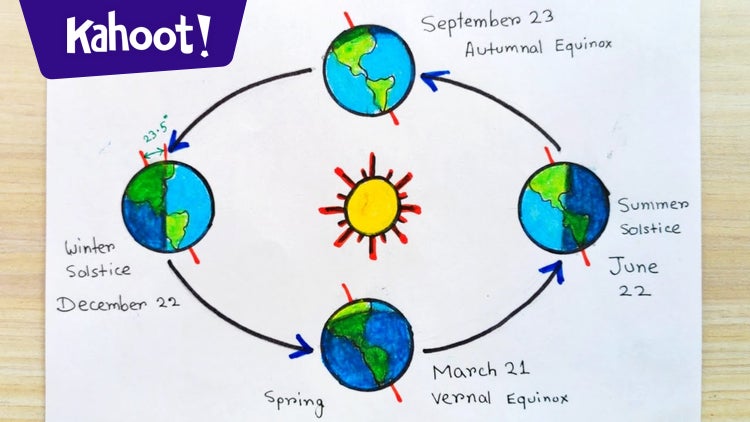 Kahoot!
September 23
Autumnal Equinox
23.5°
Summer
Solstice
June
22
Winter
Solstice
December 22
March 21
Vernal Equinox
Spring